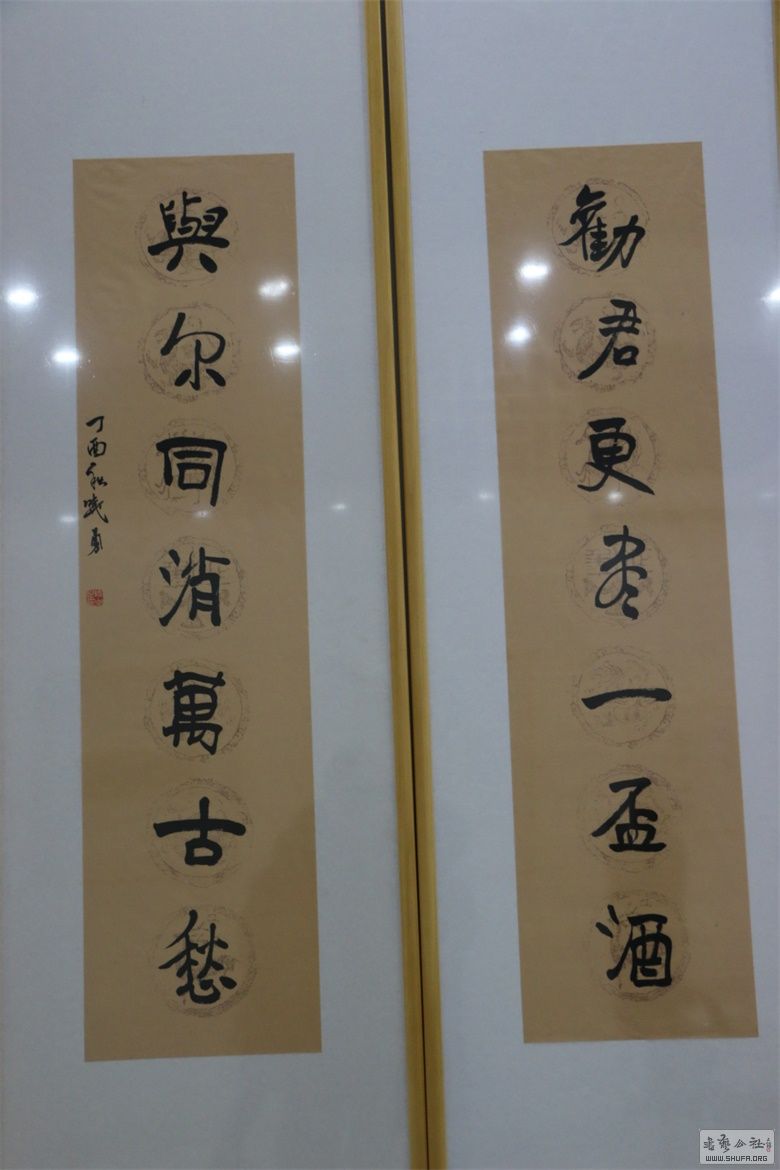 勸君更尽一盃酒
與尔同消萬古愁
丁酉秋曉勇
WWW.SHUFA.ORG